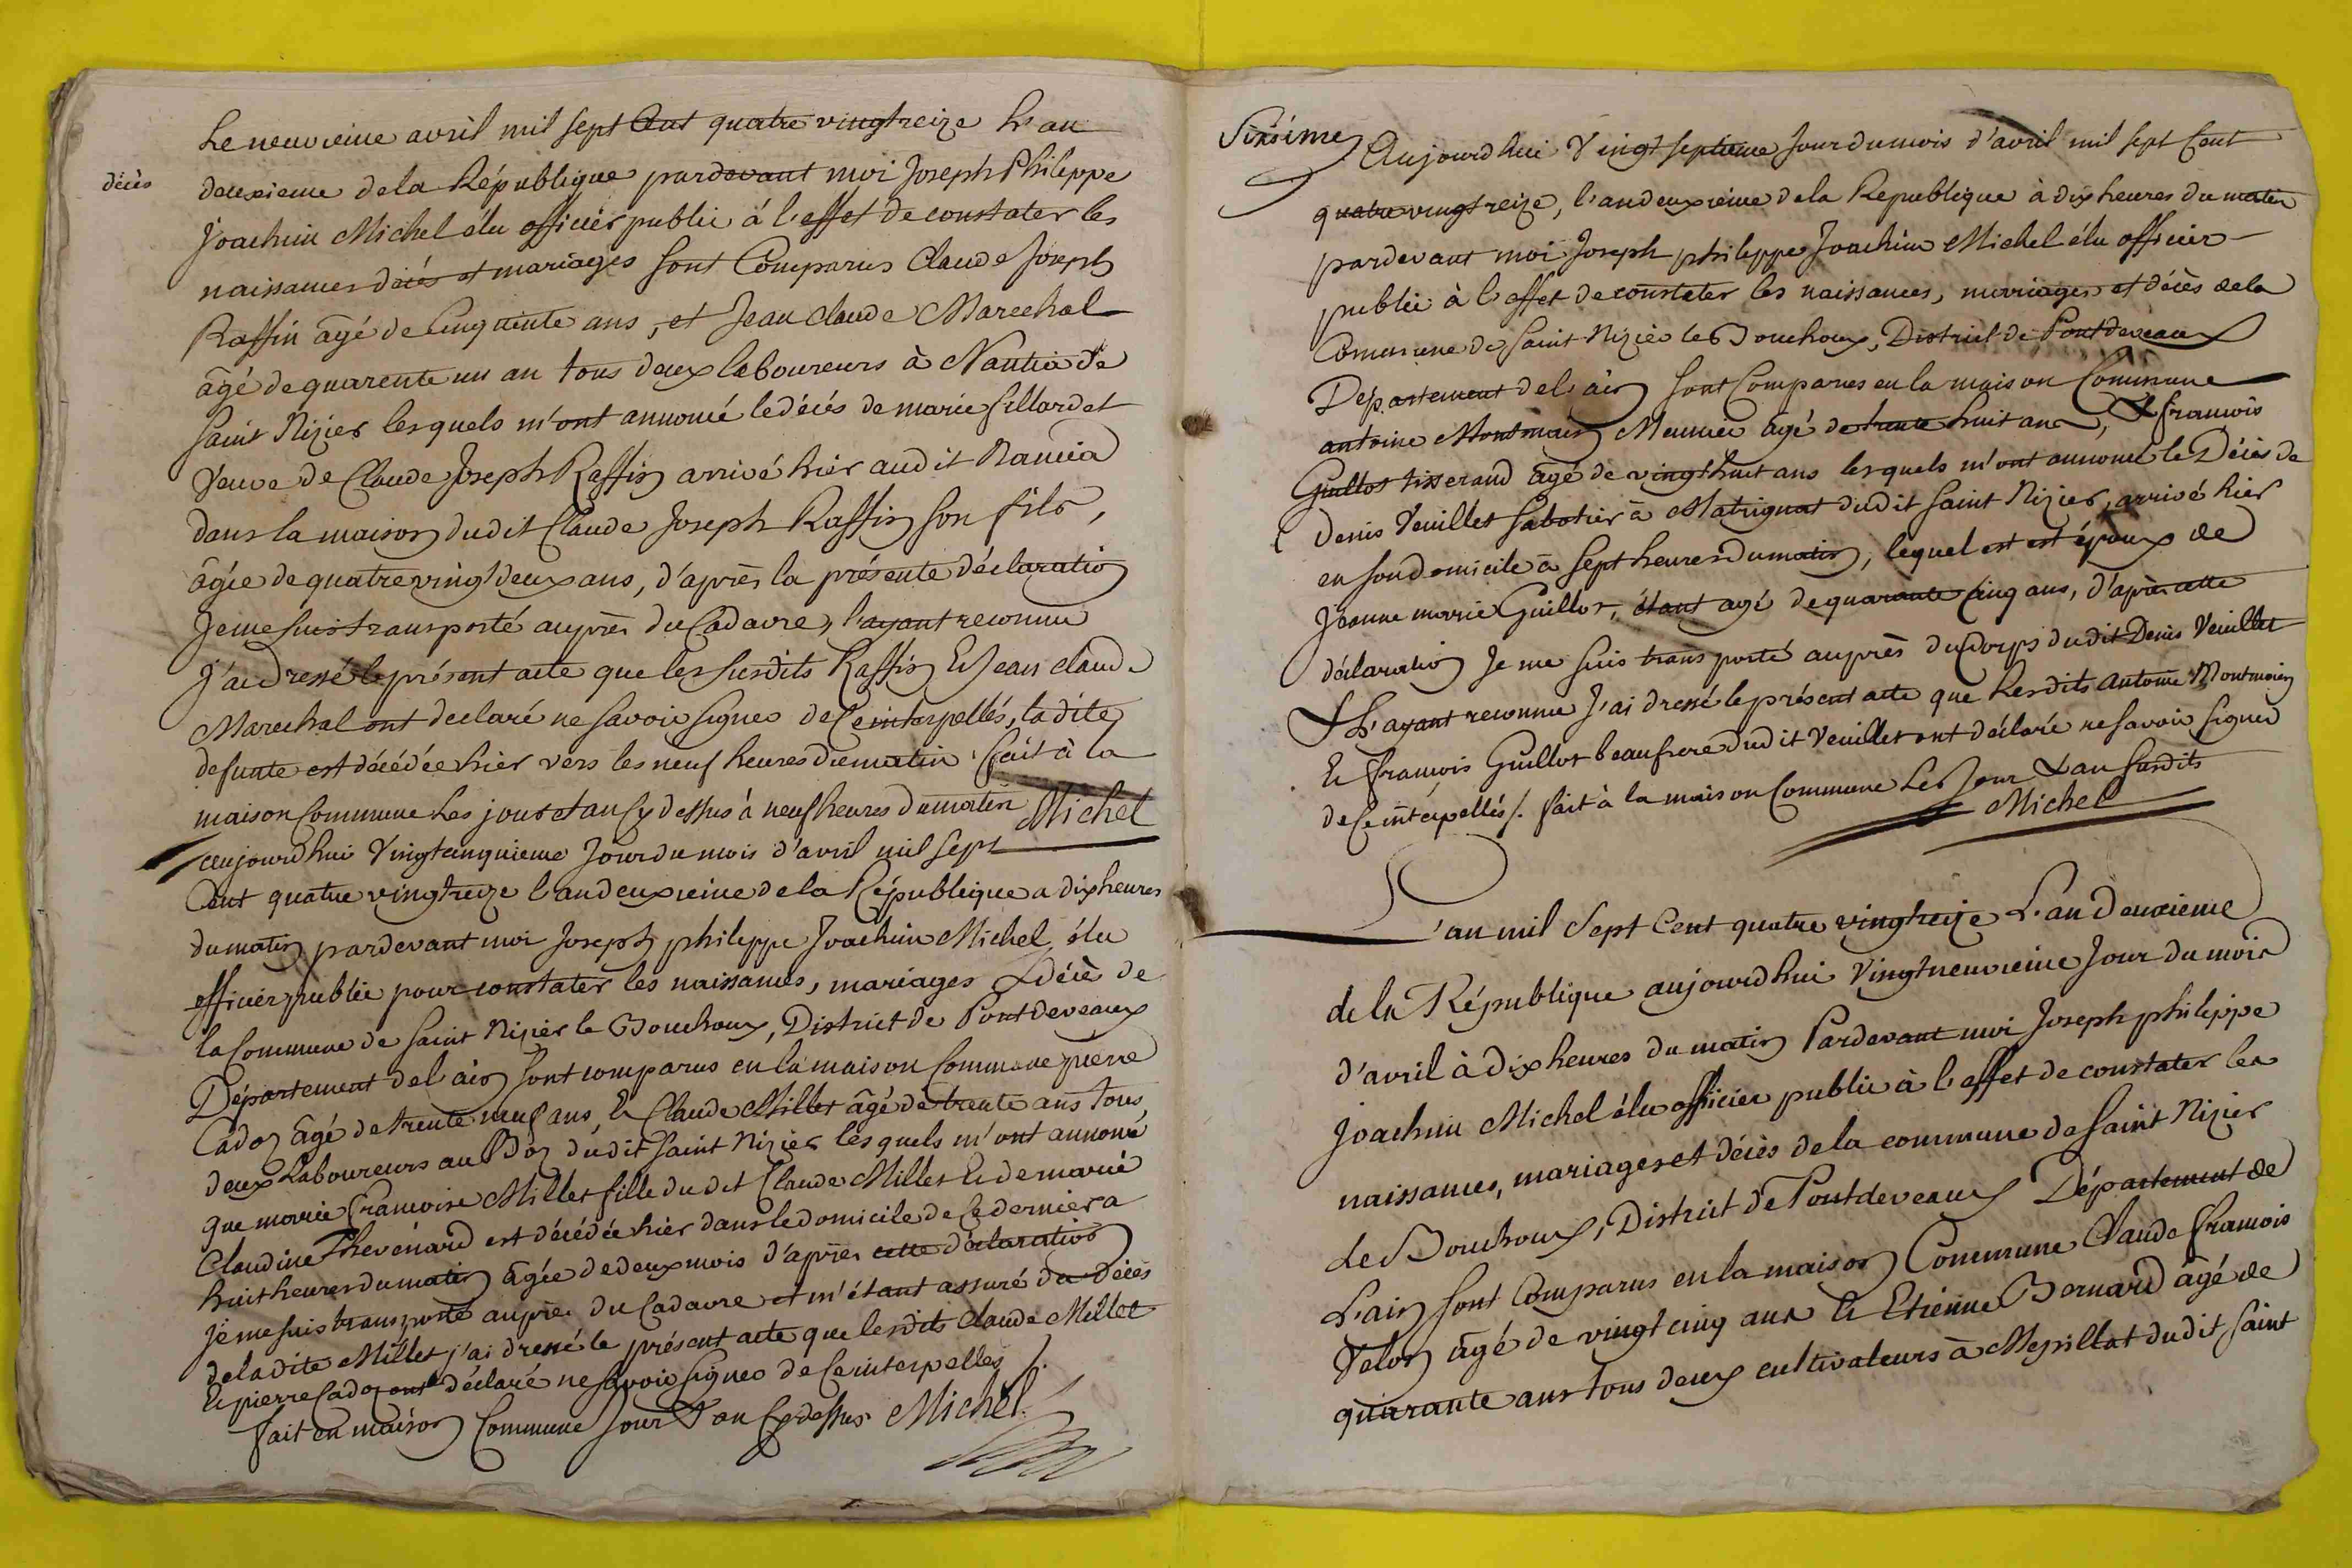 Le neuvieme avril mil sept Cent quatre vingt reize L'an
décès
deuxieme dela République pardevant moi Joseph Philippe
Joachim Michel élu officier public à l'effet de constater les
naissances décés et mariages sont Comparus Claude Joseph
Raffin âgé de Cinquante ans, et Jean Claude Marechal
âgé de quarente un an tous deux laboureurs à Nantia de
Saint Nizier lesquels m'ont annoncé le décés de marie Sillardet
Veuve de Claude Joseph Raffin arrivé hier audit Nancia
dans la maison dudit Claude Joseph Raffin son fils,
âgée de quatre vingt deux ans, d'après la présente déclaration
Je me suis transporté auprès du Cadavre, l'ayant reconnu
J'ai dressé le présent acte que les susdits Raffin Et Jean claude
Marechal ont declaré ne savoir signer de Ce interpellés, la dite
defunte est décédée hier vers les neuf heures du matin fait à la
maison Commune Les jour et an Cy dessus à neuf heures du matin Michel
aujourd'hui Vingt cinquieme Jour du mois d'avril mil sept
Cent quatre vingt reize l'an deuxieme de la République a dix heures
du matin pardevant moi Joseph philippe Joachim Michel, élu
officier public pour constater les naissances, mariages & décès de
la Commune de Saint Nizier le Bouchoux, District de Pontdevaux
Département de l'ain sont comparus en la maison Commune pierre
Cadoz âgé de trente neuf ans, Et Claude Millet âgé de trente ans tous
deux Laboureurs au Boz dudit Saint Nizier lesquels m'ont annoncé
que marie francoise Millet fille dudit Claude Millet Et de marie
Claudine Thevenard est décédée hier dans le domicile de Ce dernier a
huit heures du matin âgée de deux mois d'après cette déclaration
Je me suis transporté auprès du Cadavre et m'étant assuré du Décès
de la dite Millet j'ai dressé le présent acte que lesdits Claude Millet
Et pierre Cadoz ont déclaré ne savoir signer de Ce interpellés /.
fait en maison Commune Jour & an Cy dessus Michel
Sixsime
Aujourd'hui Vingt septieme Jour du mois d'avril mil sept Cent
quatre vingt reize, l'an deuxieme de la Republique à dix heures du matin
pardevant moi Joseph philippe Joachim Michel élu officier
public à l'effet de constater les naissances, mariages et décès de la
Commune de Saint Nizier le Bouchoux, District de Pontdeveaux
Département de l'ain sont Comparus en la maison Commune
antoine Montmain Meunier âgé de trente huit ans, & francois
Guillot tisserand âgé de vingt huit ans lesquels m'ont annoncé le Décès de
Denis Veuillet Sabotier à Matrignat dudit Saint Nizier, arrivé hier
en son domicile à sept heures du matin, lequel est est époux de
Jeanne marie Guillot, étant agé de quarante Cinq ans, d'après cette
déclaration Je me suis transporté auprès du Corps dudit Denis Veuillet
& L'ayant reconnu J'ai dressé le présent acte que Lesdits Antoine Montmain
Et francois Guillot beaufrere dudit Veuillet ont déclaré ne savoir signer
de Ce interpellés /. fait à la maison Commune Les Jour & an susdits
Michel
L'an mil Sept Cent quatre vingt reize L'an Deuxieme
de la République aujourd'hui Vingt neuvieme Jour du mois
d'avril à Dix heures du matin Pardevant moi Joseph philippe
Joachim Michel élu officier public à l'effet de constater les
naissances, mariages et décès de la commune de Saint Nizier
Le Bouchoux, District de Pontdeveaux Département de
L'ain sont Comparus en la maison Commune Claude francois
Velon âgé de vingt cinq ans Et Etienne Bernard âgé de
quarante ans tous deux cultivateurs à Mepillat dudit Saint